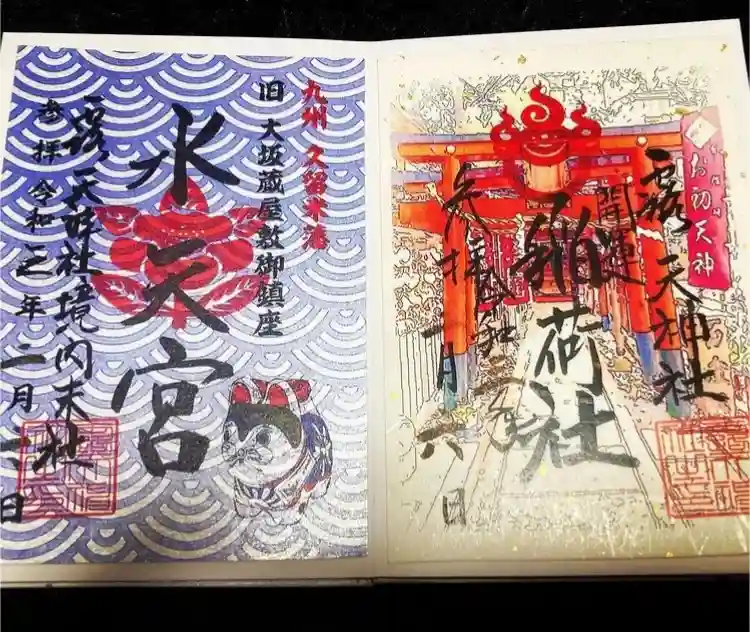 九州 久留米藩
旧 大坂蔵屋敷御鎮座
水天宮
露天神社境内末社
参拝 令和 年 二月 六日
お初天神
露天神社
開運
稲荷社
参拝 令和 二年 二月 六日